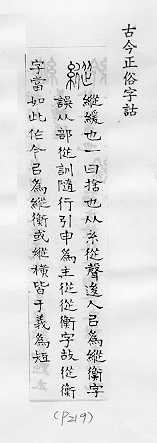 古今正俗字詁
縱
縱緩也一曰捨也从糸從聲後人㠯爲縱衡字
誤从部從訓隨行引申爲主從從衡字故從衡
字當如此作今㠯爲縱衡或縱橫皆于義爲短
(P219)